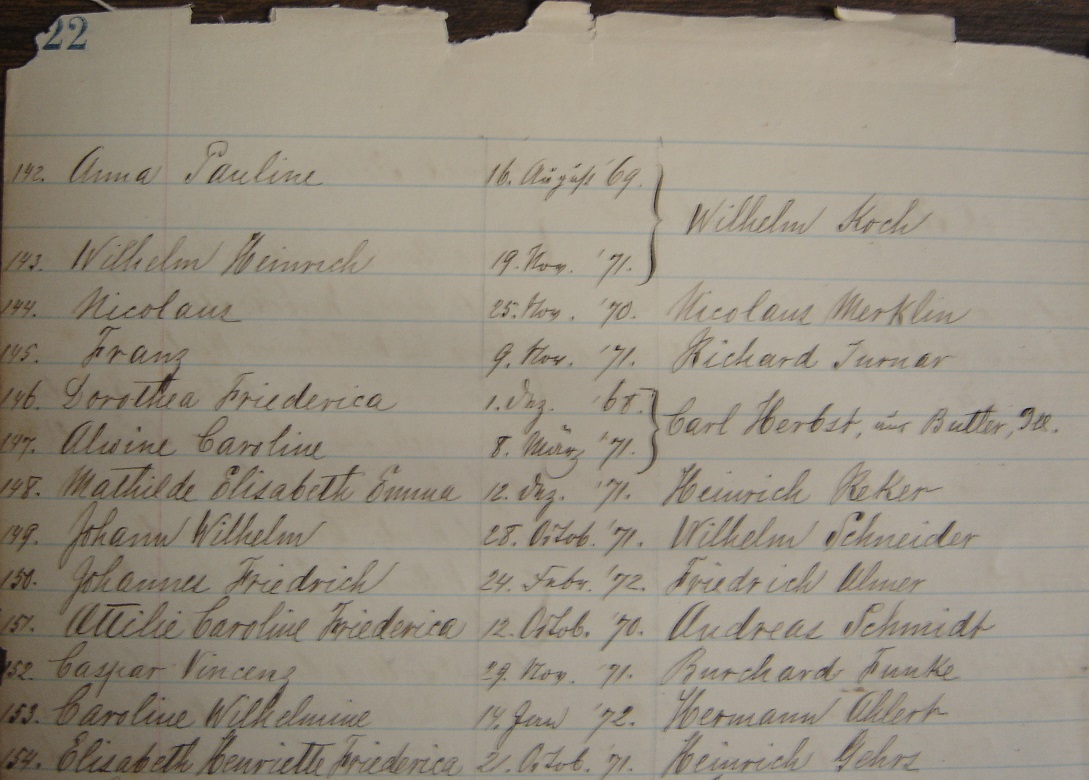 22
142. Anna Pauline 16. August '69.
Wilhelm Koch
143. Wilhelm Heinrich 19. Nov. '71.
144. Nicolaus 25. Nov. '70. Nicolaus Merklin
145. Franz 9. Nov. '71. Richard Turnar
146. Dorothea Friederica 1. Dez.
Carl Herbst, aus Butler, Ill.
147. Alwine Caroline 8. März '71.
148. Mathilde Elisabeth Emma 12. Dez. '71. Heinrich Reker
149. Johann Wilhelm 28. Octob. '71. Wilhelm Schneider
150. Johannes Friedrich 24. Febr. '72. Friedrich
151. Attilie Caroline Friederica 12. Octob. '70. Andreas Schmidt
152. Caspar Vincenz 29. Nov. '71. Burchard Funke
153. Caroline Wilhelmine 14. Jan '72. Hermann Ahlert
154. Elisabeth Henriette Friederica 21. Octob. '71. Heinrich Gehrs